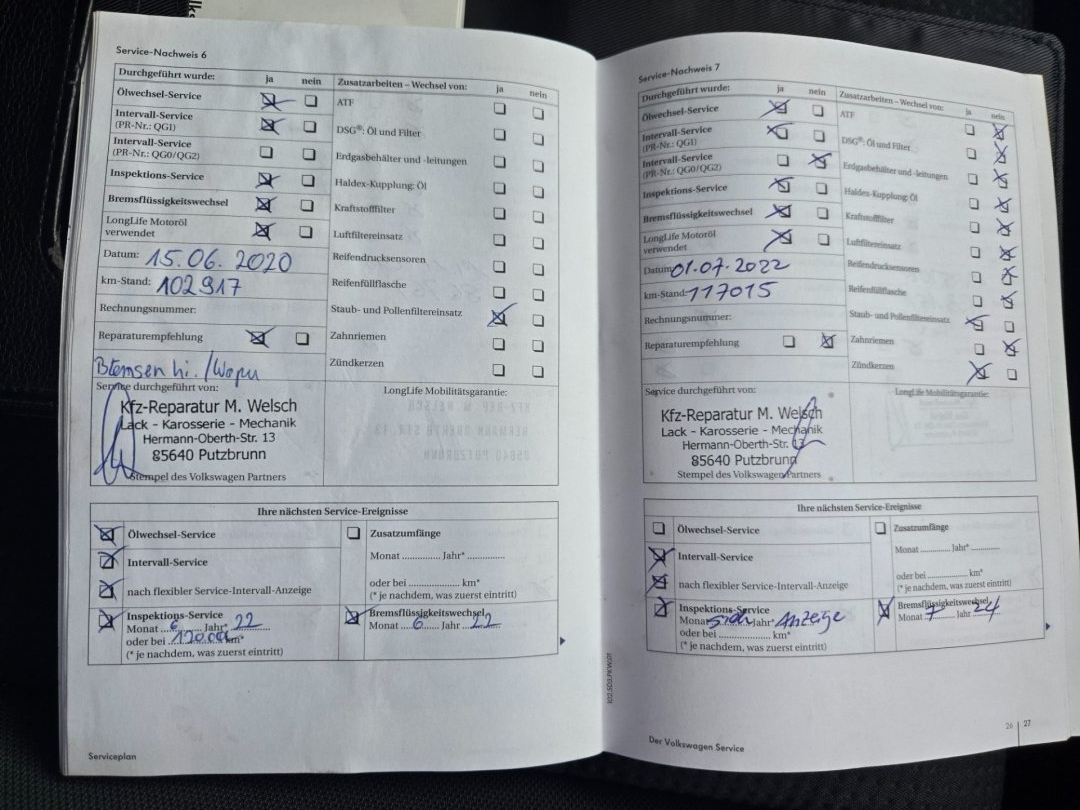 Service-Nachweis 6
Durchgeführt wurde: ja nein
Zusatzarbeiten – Wechsel von: ja nein
Ölwechsel-Service
Intervall-Service
(PR-Nr.: QG1)
Intervall-Service
(PR-Nr.: QG0/QG2)
Inspektions-Service
Bremsflüssigkeitswechsel
LongLife Motoröl
verwendet
Datum: 15.06.2020
km-Stand: 102917
Rechnungsnummer:
Reparaturempfehlung
Bremsen hi. / Wapu
ATF
DSG®: Öl und Filter
Erdgasbehälter und -leitungen
Haldex-Kupplung: Öl
Kraftstofffilter
Luftfiltereinsatz
Reifendrucksensoren
Reifenfüllflasche
Staub- und Pollenfiltereinsatz
Zahnriemen
Zündkerzen
Service durchgeführt von:
Kfz-Reparatur M. Welsch
Lack - Karosserie - Mechanik
Hermann-Oberth-Str. 13
85640 Putzbrunn
Stempel des Volkswagen Partners
LongLife Mobilitätsgarantie:
Ihre nächsten Service-Ereignisse
Ölwechsel-Service
Intervall-Service
nach flexibler Service-Intervall-Anzeige
Zusatzumfänge
Monat ............... Jahr* ...............
oder bei .................... km*
(* je nachdem, was zuerst eintritt)
Inspektions-Service
Monat 6 Jahr* 22
oder bei 12000 km*
(* je nachdem, was zuerst eintritt)
Bremsflüssigkeitswechsel
Monat 6 Jahr 22
Serviceplan
Service-Nachweis 7
Durchgeführt wurde: ja nein
Zusatzarbeiten – Wechsel von: ja nein
Ölwechsel-Service
Intervall-Service
(PR-Nr.: QG1)
Intervall-Service
(PR-Nr.: QG0/QG2)
Inspektions-Service
Bremsflüssigkeitswechsel
LongLife Motoröl
verwendet
Datum: 01.07.2022
km-Stand: 117015
Rechnungsnummer:
Reparaturempfehlung
ATF
DSG®: Öl und Filter
Erdgasbehälter und -leitungen
Haldex-Kupplung: Öl
Kraftstofffilter
Luftfiltereinsatz
Reifendrucksensoren
Reifenfüllflasche
Staub- und Pollenfiltereinsatz
Zahnriemen
Zündkerzen
Service durchgeführt von:
Kfz-Reparatur M. Welsch
Lack - Karosserie - Mechanik
Hermann-Oberth-Str. 13
85640 Putzbrunn
Stempel des Volkswagen Partners
LongLife Mobilitätsgarantie:
Ihre nächsten Service-Ereignisse
Ölwechsel-Service
Intervall-Service
nach flexibler Service-Intervall-Anzeige
Zusatzumfänge
Monat ............... Jahr* ...............
oder bei .................... km*
(* je nachdem, was zuerst eintritt)
Inspektions-Service
Monat Jahr* Anzeige
oder bei .................... km*
(* je nachdem, was zuerst eintritt)
Bremsflüssigkeitswechsel
Monat 7 Jahr 24
Der Volkswagen Service
26 | 27